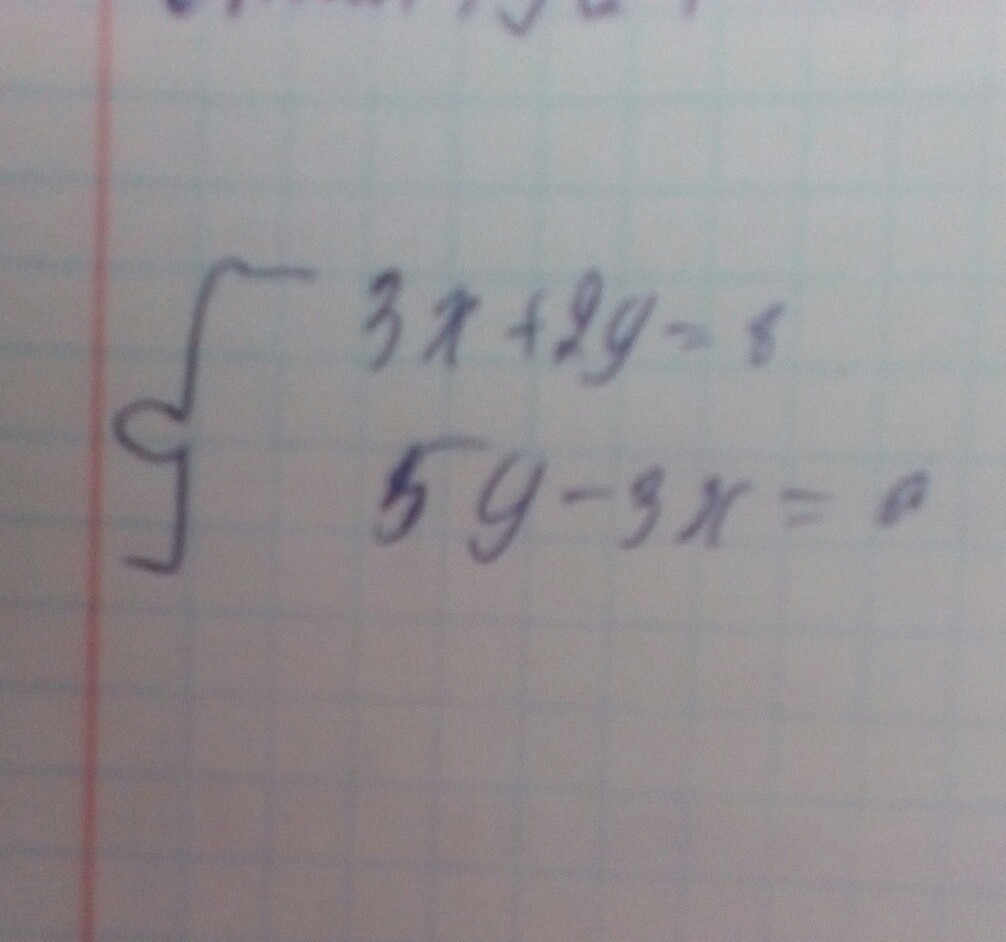 3x+2y=8
5y-3x=0